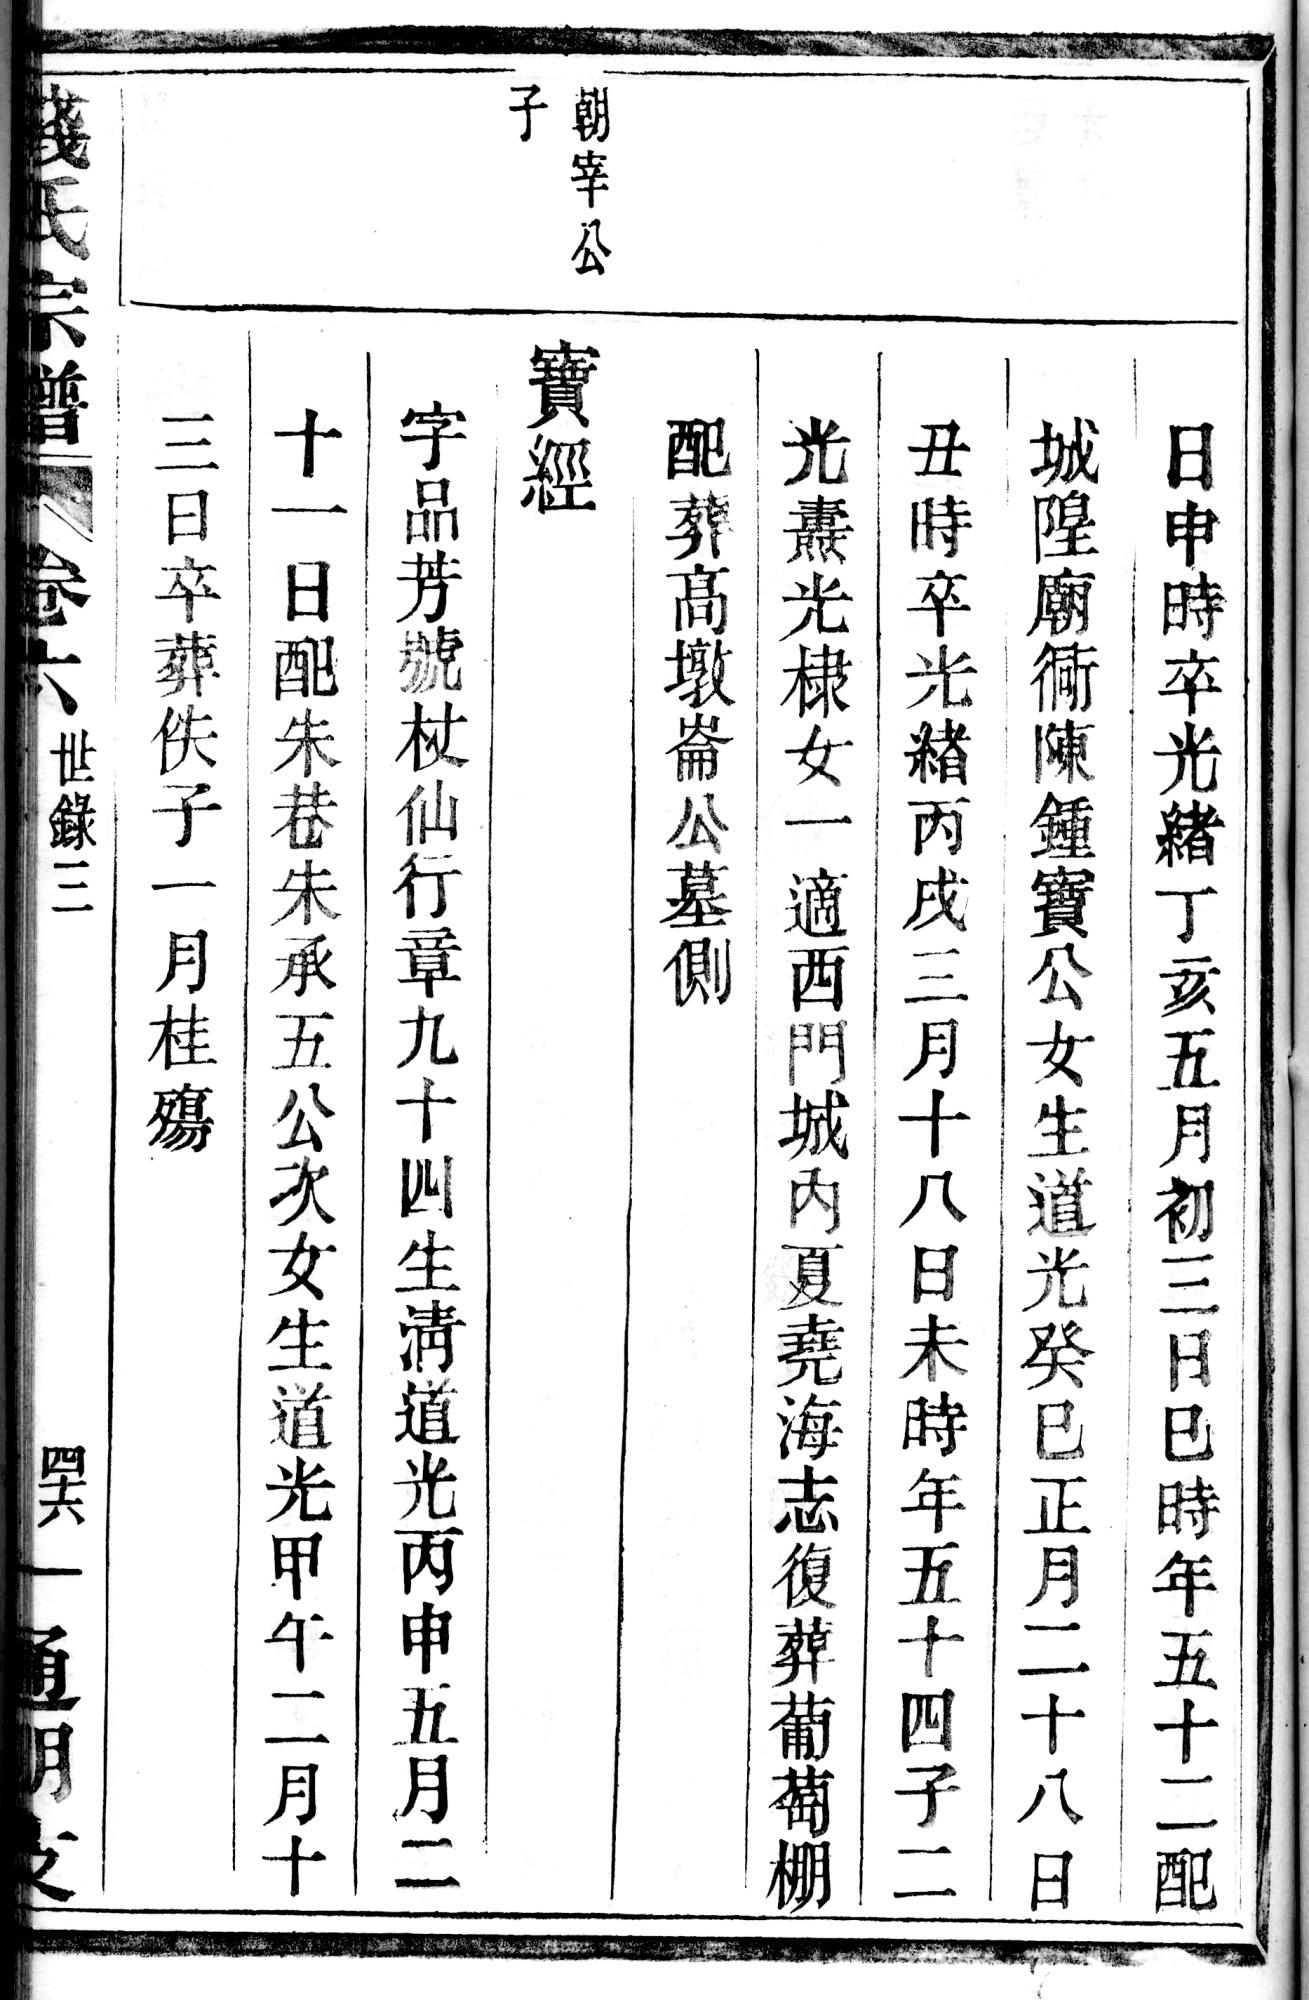 朝宰公
子
日申時卒光緒丁亥五月初三日巳時年五十二配
城隍廟衖陳鍾寶公女生道光癸巳正月二十八日
丑時卒光緒丙戌三月十八日未時年五十四子二
光燾光棣女一適西門城內夏堯海志復葬葡萄棚
配葬高墩崙公墓側
寶經
字品芳號杖仙行章九十四生清道光丙申五月二
十一日配朱巷朱承五公次女生道光甲午二月十
三日卒葬佚子一月桂殤
錢氏宗譜 卷六 世錄三 四六 一 通明支